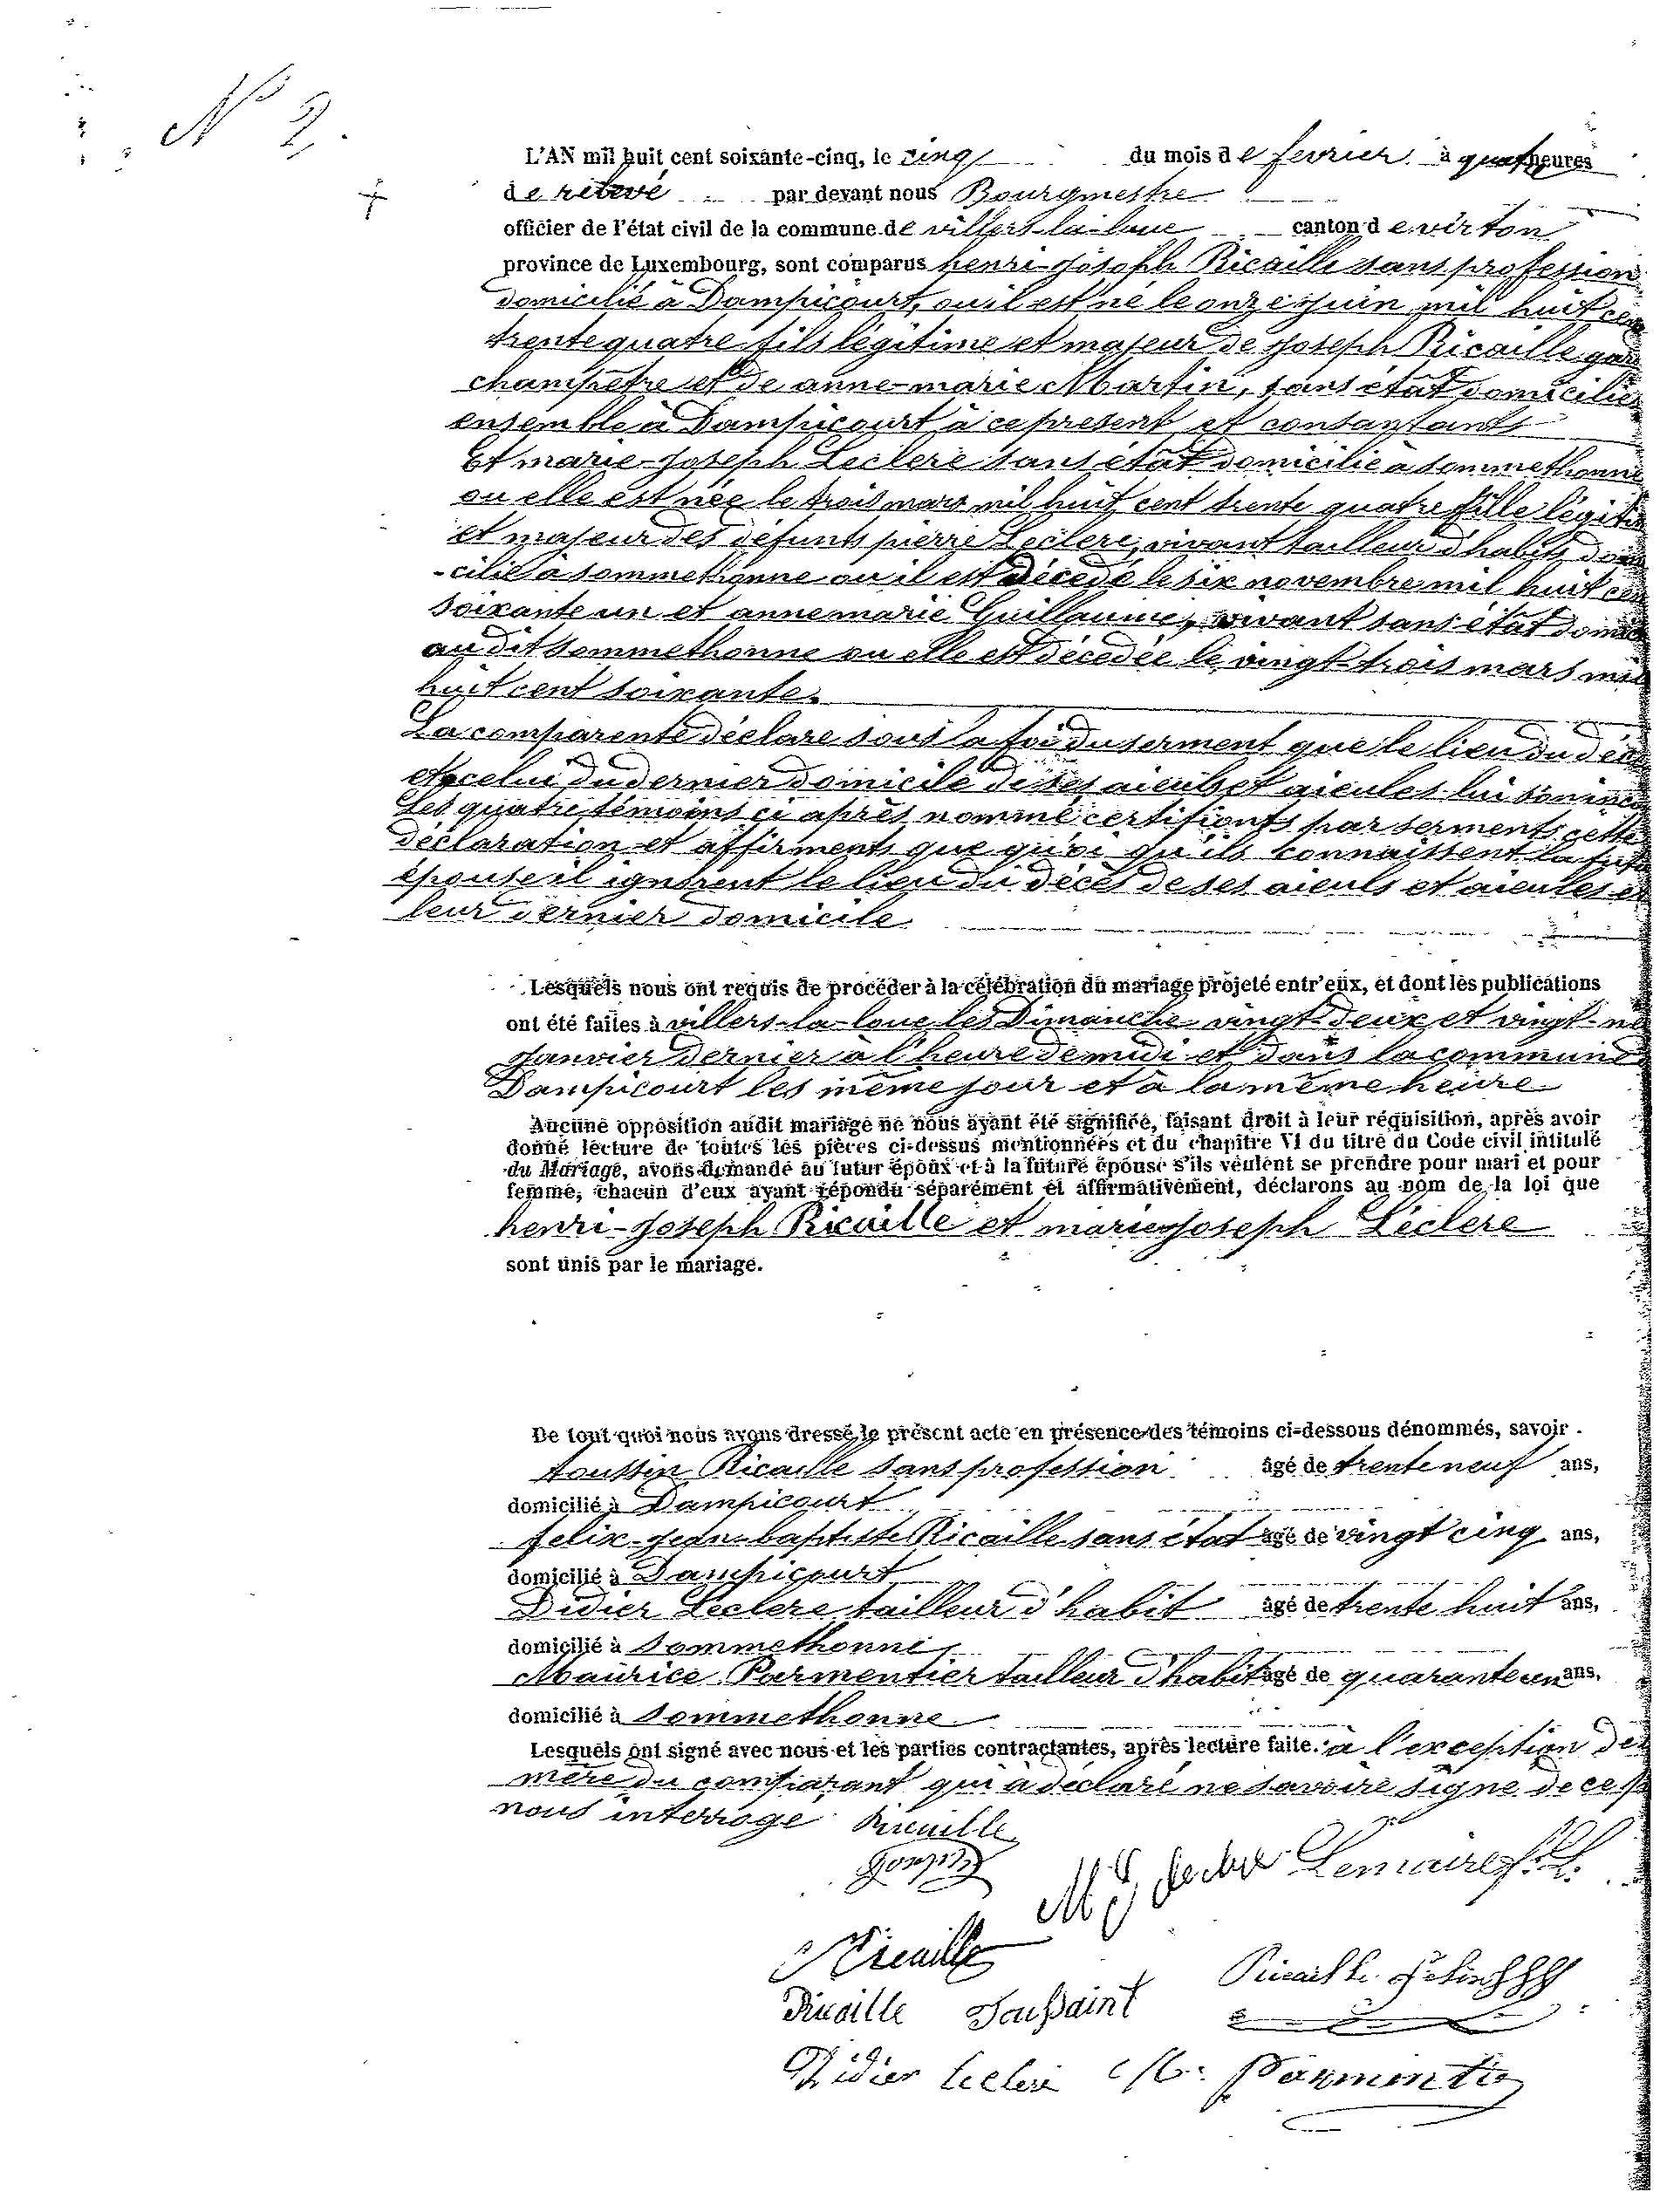 N° 2.
L'AN mil huit cent soixante-cinq, le cinq du mois de fevrier à quatre heures
de relevé par devant nous Bourgmestre
officier de l'état civil de la commune de villers-la-loue canton de virton
province de Luxembourg, sont comparus henri-Joseph Ricaille sans profession
domicilié à Dampicourt, ou il est né le onze juin mil huit cent
trente quatre fils légitime et majeur de Joseph Ricaille gar
champêtre et de anne-marie Martin, sans état domicilié
ensemble à Dampicourt à ce present et consantants
Et marie-Joseph Leclere sans état domicilié a sommethonne
ou elle est née le trois mars mil huit cent trente quatre fille légiti
et majeur des défunts pierre Leclere, vivant tailleur d'habits domi
-cilié à sommethonne ou il est décedé le six novembre mil huit cen
soixante un et anne marie Guillaume, vivant sans état domic
au dit sommethonne ou elle est décedée le vingt-trois mars mil
huit cent soixante.
La comparente déclare sous la foi du serment que le lieu du déc
et celui du dernier domicile de ses aieuls et aieules lui son inco
Les quatre témoins ci après nommé certifionts par serments cette
déclaration et affirments que quoi qu'ils connaissent la fut
épouse il ignorent le lieu du décès de ses aieuls et aieules et
leur dernier domicile
Lesquels nous ont requis de procéder à la célébration du mariage projeté entr'eux, et dont les publications
ont été faites à villers-la-loue les Dimanche vingt deux et vingt-ne
Janvier dernier à l'heure de midi et dans la commune
Dampicourt les même jour et à la même heure
Aucune opposition audit mariage ne nous ayant été signifiée, faisant droit à leur réquisition, après avoir
donné lecture de toutes les pièces ci-dessus mentionnées et du chapitre VI du titre du Code civil intitulé
du Mariage, avons demandé au futur époux et à la future épouse s'ils veulent se prendre pour mari et pour
femme; chacun d'eux ayant répondu séparément et affirmativement, déclarons au nom de la loi que
henri-Joseph Ricaille et marie Joseph Léclere
sont unis par le mariage.
De tout quoi nous avons dressé le présent acte en présence des témoins ci-dessous dénommés, savoir.
toussin Ricaille sans profession âgé de trente neuf ans,
domicilié à Dampicourt
felix-jean-baptiste Ricaille sans état âgé de vingt cinq ans,
domicilié à Dampicourt
Didier Léclere tailleur d'habit âgé de trente huit ans,
domicilié à sommethonne
Maurice Parmentier tailleur d'habit âgé de quarante un ans,
domicilié à sommethonne
Lesquels ont signé avec nous et les parties contractantes, après lecture faite. à l'exception de
mère du comparant qui à déclaré ne savoire signe de ce pa
nous interrogé Ricaille
Joseph
M J Lecler Lemaire
Ricaille
Ricaille felix
Ricaille Toussaint
Didier Leclere M. Parmentie